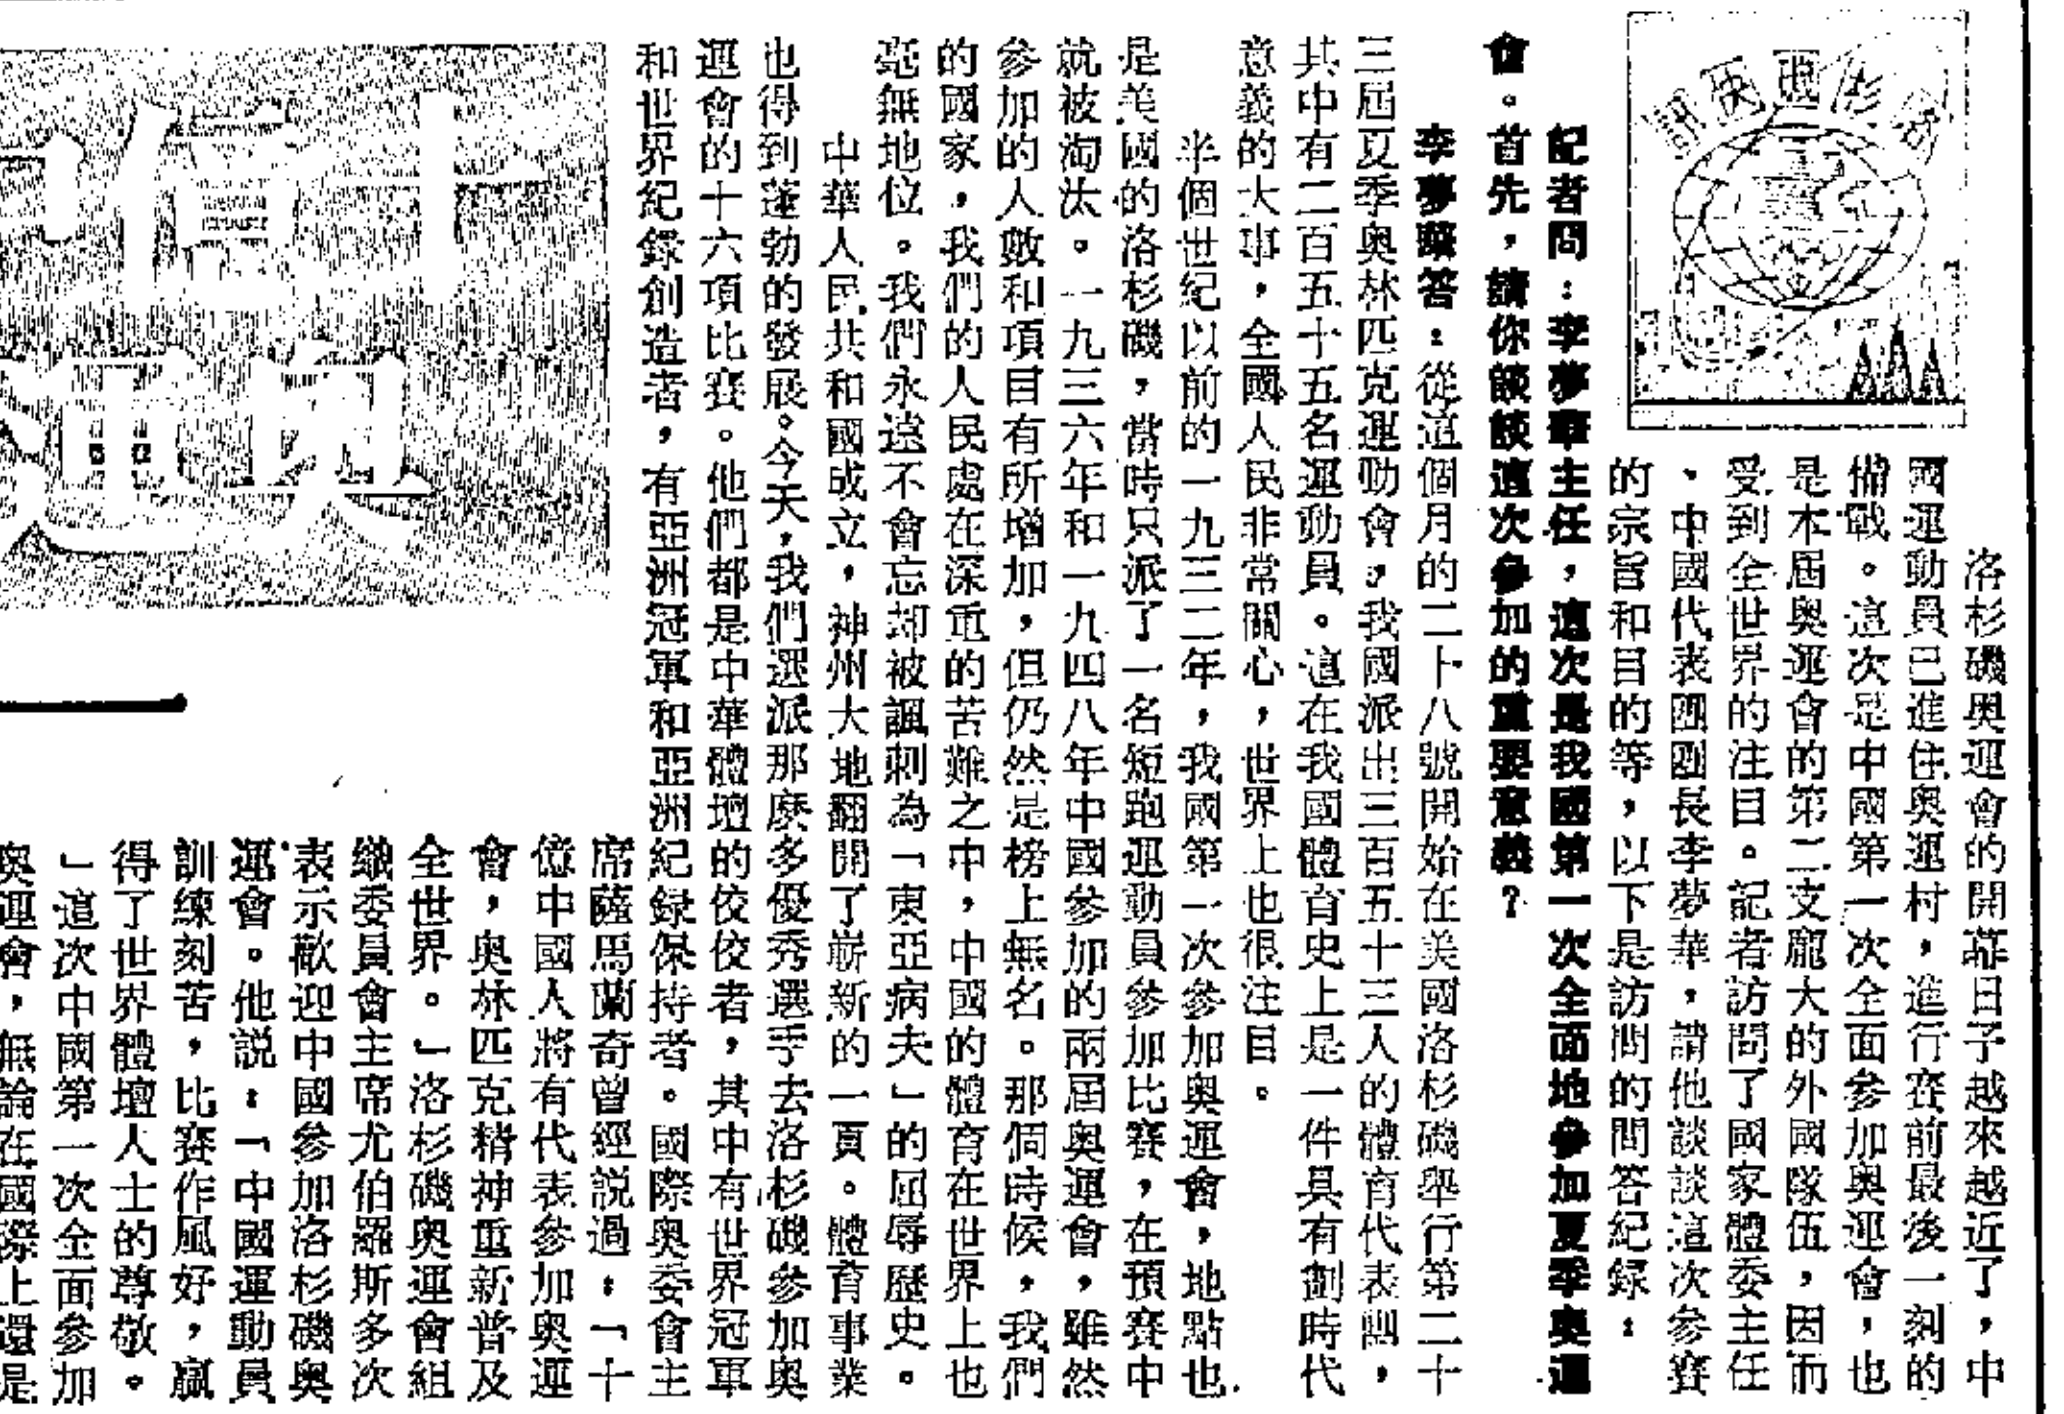 洛杉磯奧運會的開幕日子越來越近了，中
國運動員已進住奧運村，進行賽前最後一刻的
備戰。這次是中國第一次全面參加奧運會，也
是本屆奧運會的第二支龐大的外國隊伍，因而
受到全世界的注目。記者訪問了國家體委主任
、中國代表團團長李夢華，請他談談這次參賽
的宗旨和目的等，以下是訪問的問答紀録：
記者問：李夢華主任，這次是我國第一次全面地參加夏季奧運
會。首先，請你談談這次參加的重要意義？
李夢華答：從這個月的二十八號開始在美國洛杉磯舉行第二十
三屆夏季奧林匹克運動會，我國派出三百五十三人的體育代表團，
其中有二百五十五名運動員。這在我國體育史上是一件具有劃時代
意義的大事，全國人民非常關心，世界上也很注目。
半個世紀以前的一九三二年，我國第一次參加奧運會，地點也
是美國的洛杉磯，當時只派了一名短跑運動員參加比賽，在預賽中
就被淘汰。一九三六年和一九四八年中國參加的兩屆奧運會，雖然
參加的人數和項目有所增加，但仍然是榜上無名。那個時候，我們
的國家，我們的人民處在深重的苦難之中，中國的體育在世界上也
毫無地位。我們永遠不會忘却被諷刺為「東亞病夫」的屈辱歷史。
中華人民共和國成立，神州大地翻開了嶄新的一頁。體育事業
也得到蓬勃的發展。今天，我們選派那麽多優秀選手去洛杉磯參加奧
運會的十六項比賽。他們都是中華體壇的佼佼者，其中有世界冠軍
和世界紀錄創造者，有亞洲冠軍和亞洲紀録保持者。國際奧委會主
席薩馬蘭奇曾經説過：「十
億中國人將有代表參加奧運
會，奧林匹克精神重新普及
全世界。」洛杉磯奧運會組
織委員會主席尤伯羅斯多次
表示歡迎中國參加洛杉磯奧
運會。他説：「中國運動員
訓練刻苦，比賽作風好，贏
得了世界體壇人士的尊敬。
」這次中國第一次全面參加
奧運會，無論在國際上還是
十億
奧運